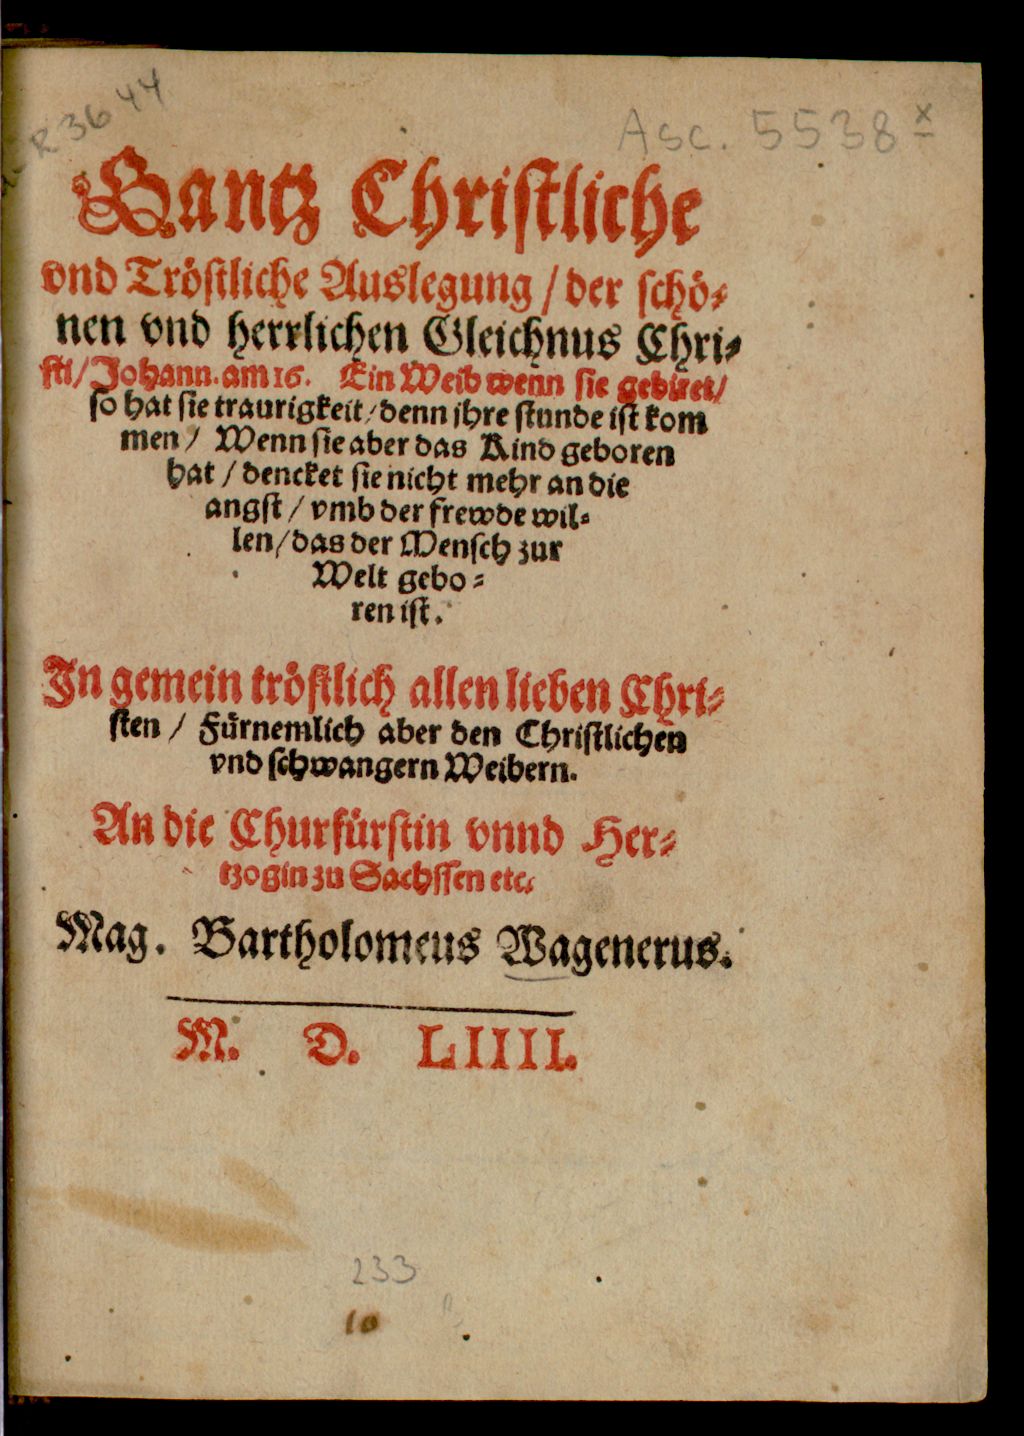 R 3644
Asc. 5538 x
Gantz Christliche
vnd Tröstliche Auslegung / der schö⸗
nen vnd herrlichen Gleichnus Chri⸗
sti / Johann. am 16. Ein Weib wenn sie gebiret /
so hat sie traurigkeit / denn jhre stunde ist kom
men / Wenn sie aber das Kind geboren
hat / dencket sie nicht mehr an die
angst / vmb der frewde wil⸗
len / das der Mensch zur
Welt gebo⸗
ren ist.
In gemein tröstlich allen lieben Chri⸗
sten / Fürnemlich aber den Christlichen
vnd schwangern Weibern.
An die Churfürstin vnnd Her⸗
tzogin zu Sachssen etc.
Mag. Bartholomeus Wagenerus.
M. D. LIIII.
233
10